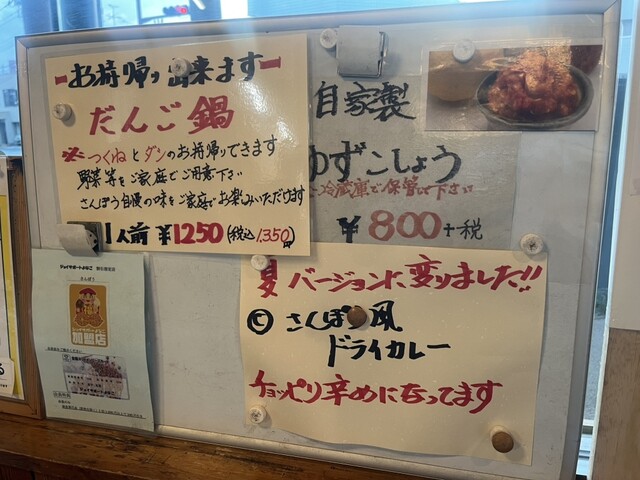 お持帰り出来ます
だんご鍋
※つくねとダシのお持帰りできます
野菜等をご家庭でご用意下さい
さんぽう自慢の味をご家庭でお楽しみいただけます
1人前¥1250(税込1,350円)
自家製
ゆずこしょう
冷蔵庫で保管して下さい
¥800+税
夏バージョンに変りました!!
© さんぽう風
ドライカレー
チョッピリ辛めになってます
さんぽう
加盟店